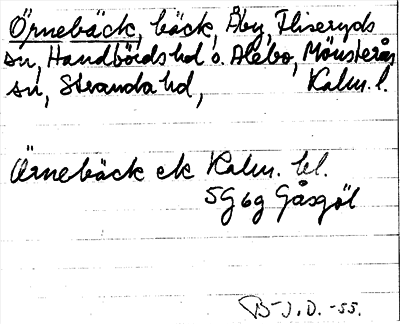 Örnebäck, bäck, Åby, Fliseryds
sn, Handbörds hd o. Alebo, Mönsterås
sn, Stranda hd, Kalm. l.
Örnebäck ek Kalm. bl.
5G6g Gåsgöl
B-J.D.-55.